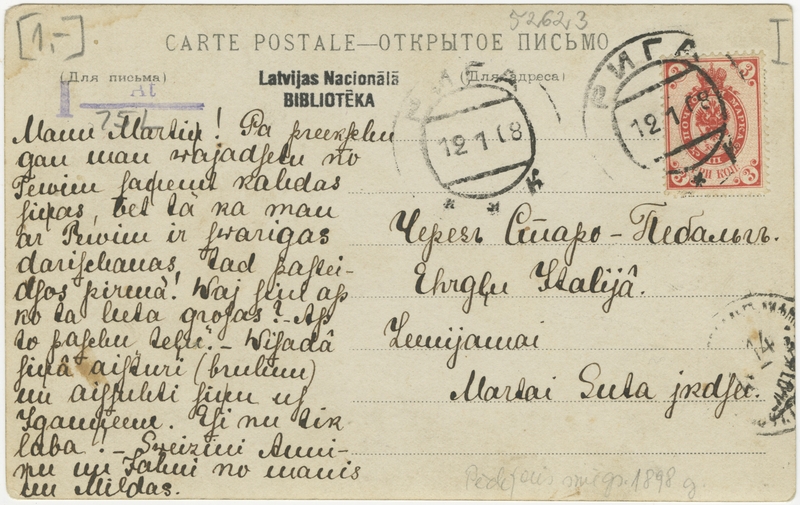 [1,-].
52623
CARTE POSTALE—ОТКРЫТОЕ ПИСЬМО
(Для письма)
Latvijas Nacionālā
BIBLIOTĒKA
(Для адреса)
РИГА
12 1 08
РИГА
12 1 08
МАРКА
3
Mann Martiņ! Pa preekſchu
gan man wajadſetu no
Tewim ſaņemt kahdas
ſiņas, bet tā ka man
ar Tewim ir ſwarigas
dariſchanas, tad paſtei-
dſos pirmā! Waj ſini ap
ko ta luta groſas? – Ap
to paſchu teſu. – Wiſadā
ſiņā
un aiſſuhti ſiņu uſ
Igauņeem. Eſi nu tik
laba! – Sweizini Anni-
ņu un Falmi no manis
un Mildas.
Черезъ Старо-Пебальгъ.
Ehrgļu Italijā.
Zeenijamai
Martai Suta jkdſei.
14
1898 g.